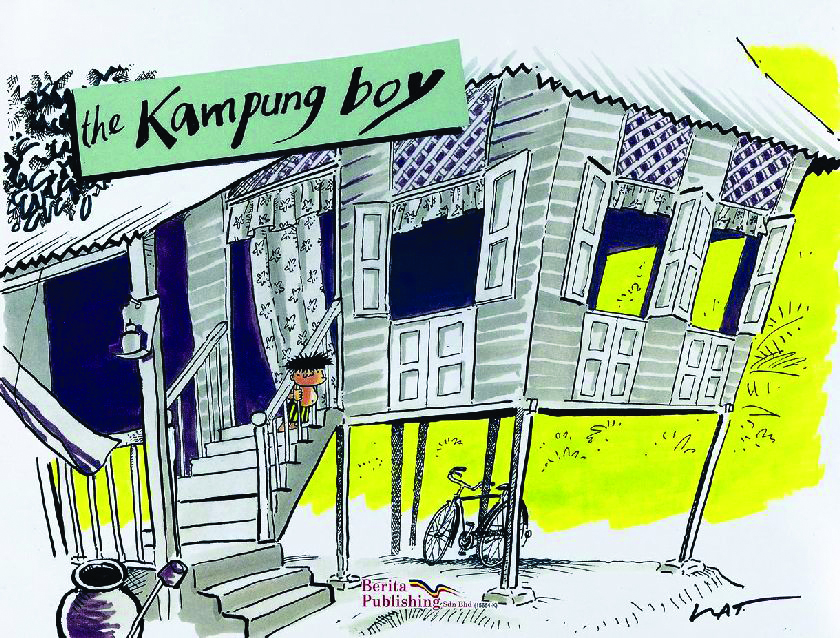 the Kampung boy
Berita
Publishing Sdn Bhd
LAT